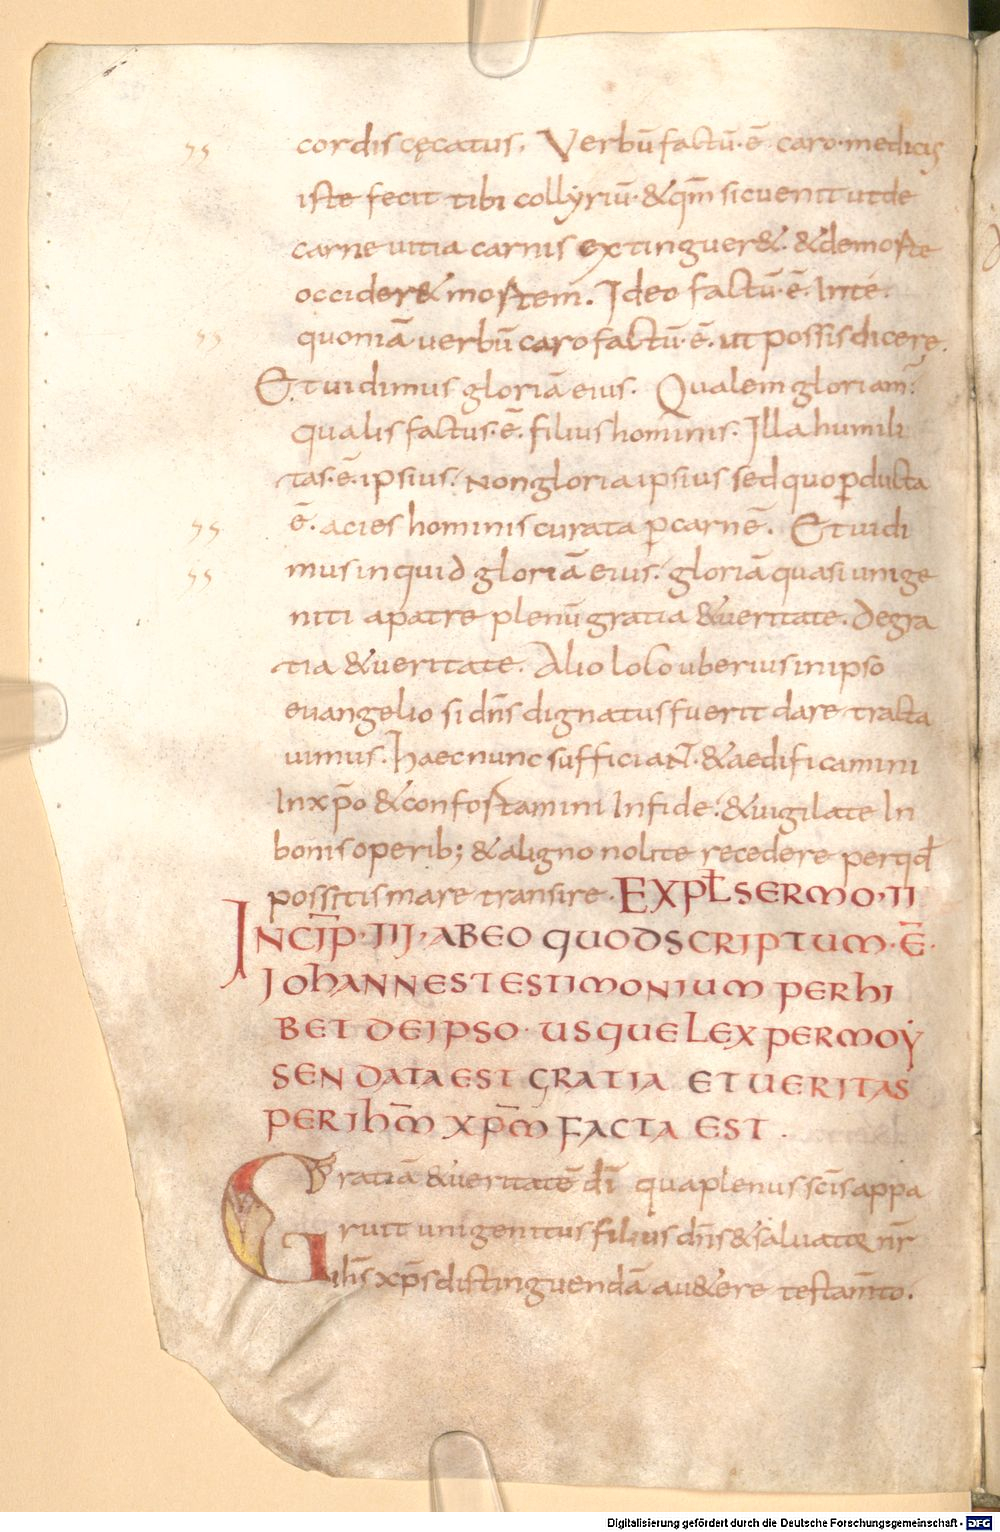 cordis cęcatus. Verbū factū·ē caro·medicis
iste fecit tibi collyriū·&qm̄ sic uenit ut de
carne uitia carnis extinguer&·&de morte
occider& mortem. Ideo factū·ē. Inte·
quoniā uerbū caro factū·ē. ut possis dicere.
Et uidimus gloriā eius. Qualem gloriam?
qualis factus·ē. filius hominis. Illa humili
tas·ē·ipsius. Non gloria ipsius sed quo ꝑducta
ē. acies hominis curata ꝑ carnē. Et uidi
mus inquid gloriā eius. gloriā quasi unige
niti a patre plenū gratia &ueritate. De gra
tia &ueritate. Alio loco uberius in ipso
euangelio si dn̄s dignatus fuerit dare tracta
uimus. Haec nunc sufficiant·&aedificamini
In xp̄o &confortamini In fide·&uigilate In
bonis operib; &a ligno nolite recedere per qđ
possitis mare transire. EXPL̄ SERMO·II
INCIP̄·III·AB EO QUOD SCRIPTUM·Ē·
IOHANNES TESTIMONIUM PERHI
BET DE IPSO·USQUE LEX PER MOẎ
SEN DATA EST GRATIA ET UERITAS
PER IHM̄ XPM̄ FACTA EST.
Gratiā &ueritatē dī qua plenus scīs appa
ruit unigenitus filius dn̄s &saluator nr̄
ih̄s xp̄s distinguendā a u&ere testam̄to.
Digitalisierung gefördert durch die Deutsche Forschungsgemeinschaft - DFG